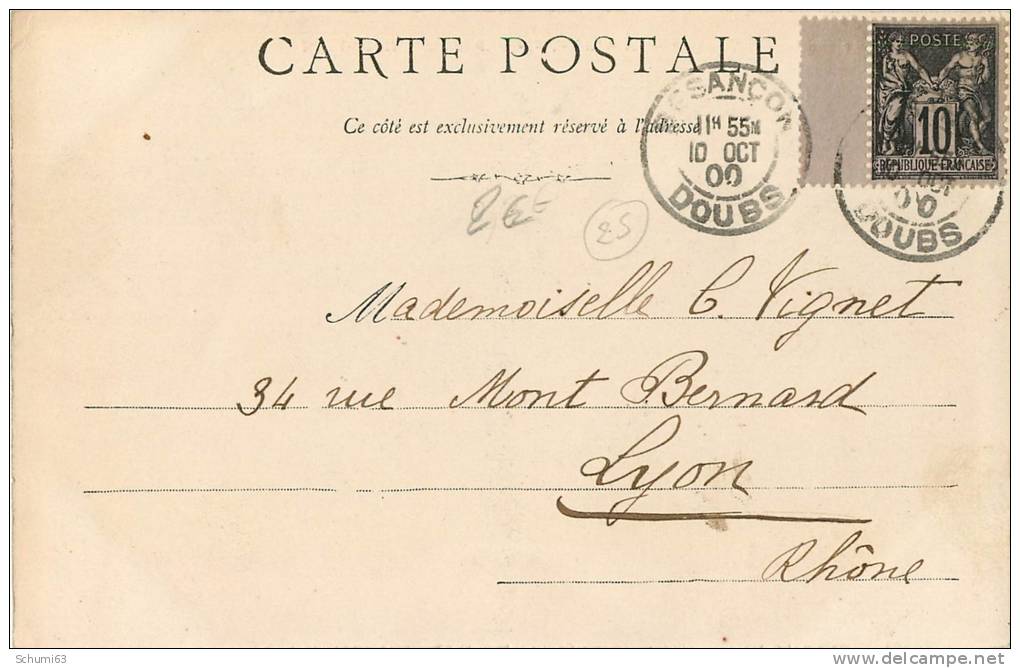 CARTE POSTALE
Ce côté est exclusivement réservé à l'adresse
BESANÇON
11H 55M
10 OCT
00
DOUBS
POSTE
10
RÉPUBLIQUE FRANÇAISE
OCT
00
DOUBS
25
Mademoiselle C. Vignet
34 rue Mont Bernard
Lyon
Rhône
Schumi63
www.delcampe.net